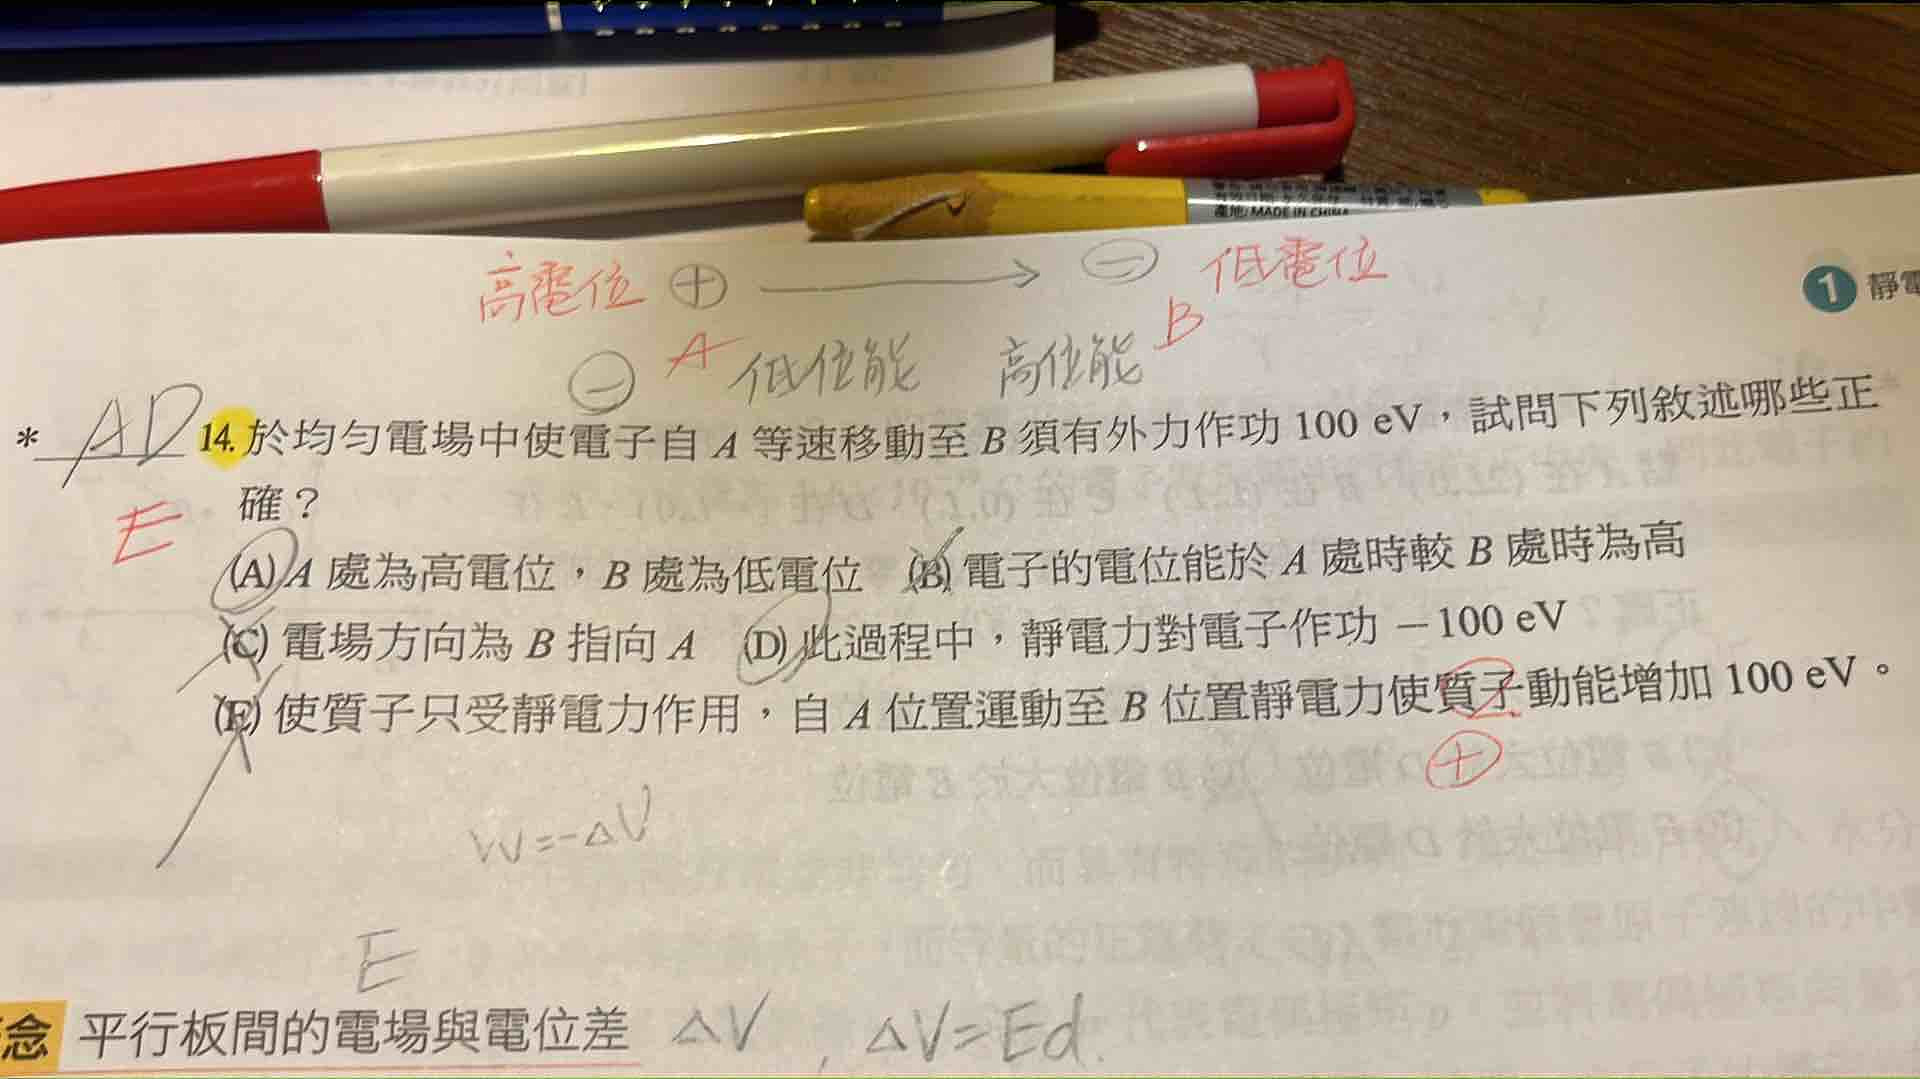 產地: MADE IN CHINA
高電位 ⊕ → ⊖ 低電位
1 靜電
⊖ A 低位能 高位能 B
* AD 14. 於均勻電場中使電子自 A 等速移動至 B 須有外力作功 100 eV，試問下列敘述哪些正
E 確？
(A) A 處為高電位，B 處為低電位 (B) 電子的電位能於 A 處時較 B 處時為高
(C) 電場方向為 B 指向 A (D) 此過程中，靜電力對電子作功 －100 eV
(E) 使質子只受靜電力作用，自 A 位置運動至 B 位置靜電力使質子動能增加 100 eV。
⊕
W=-△U
E
念 平行板間的電場與電位差 △V , △V=Ed.